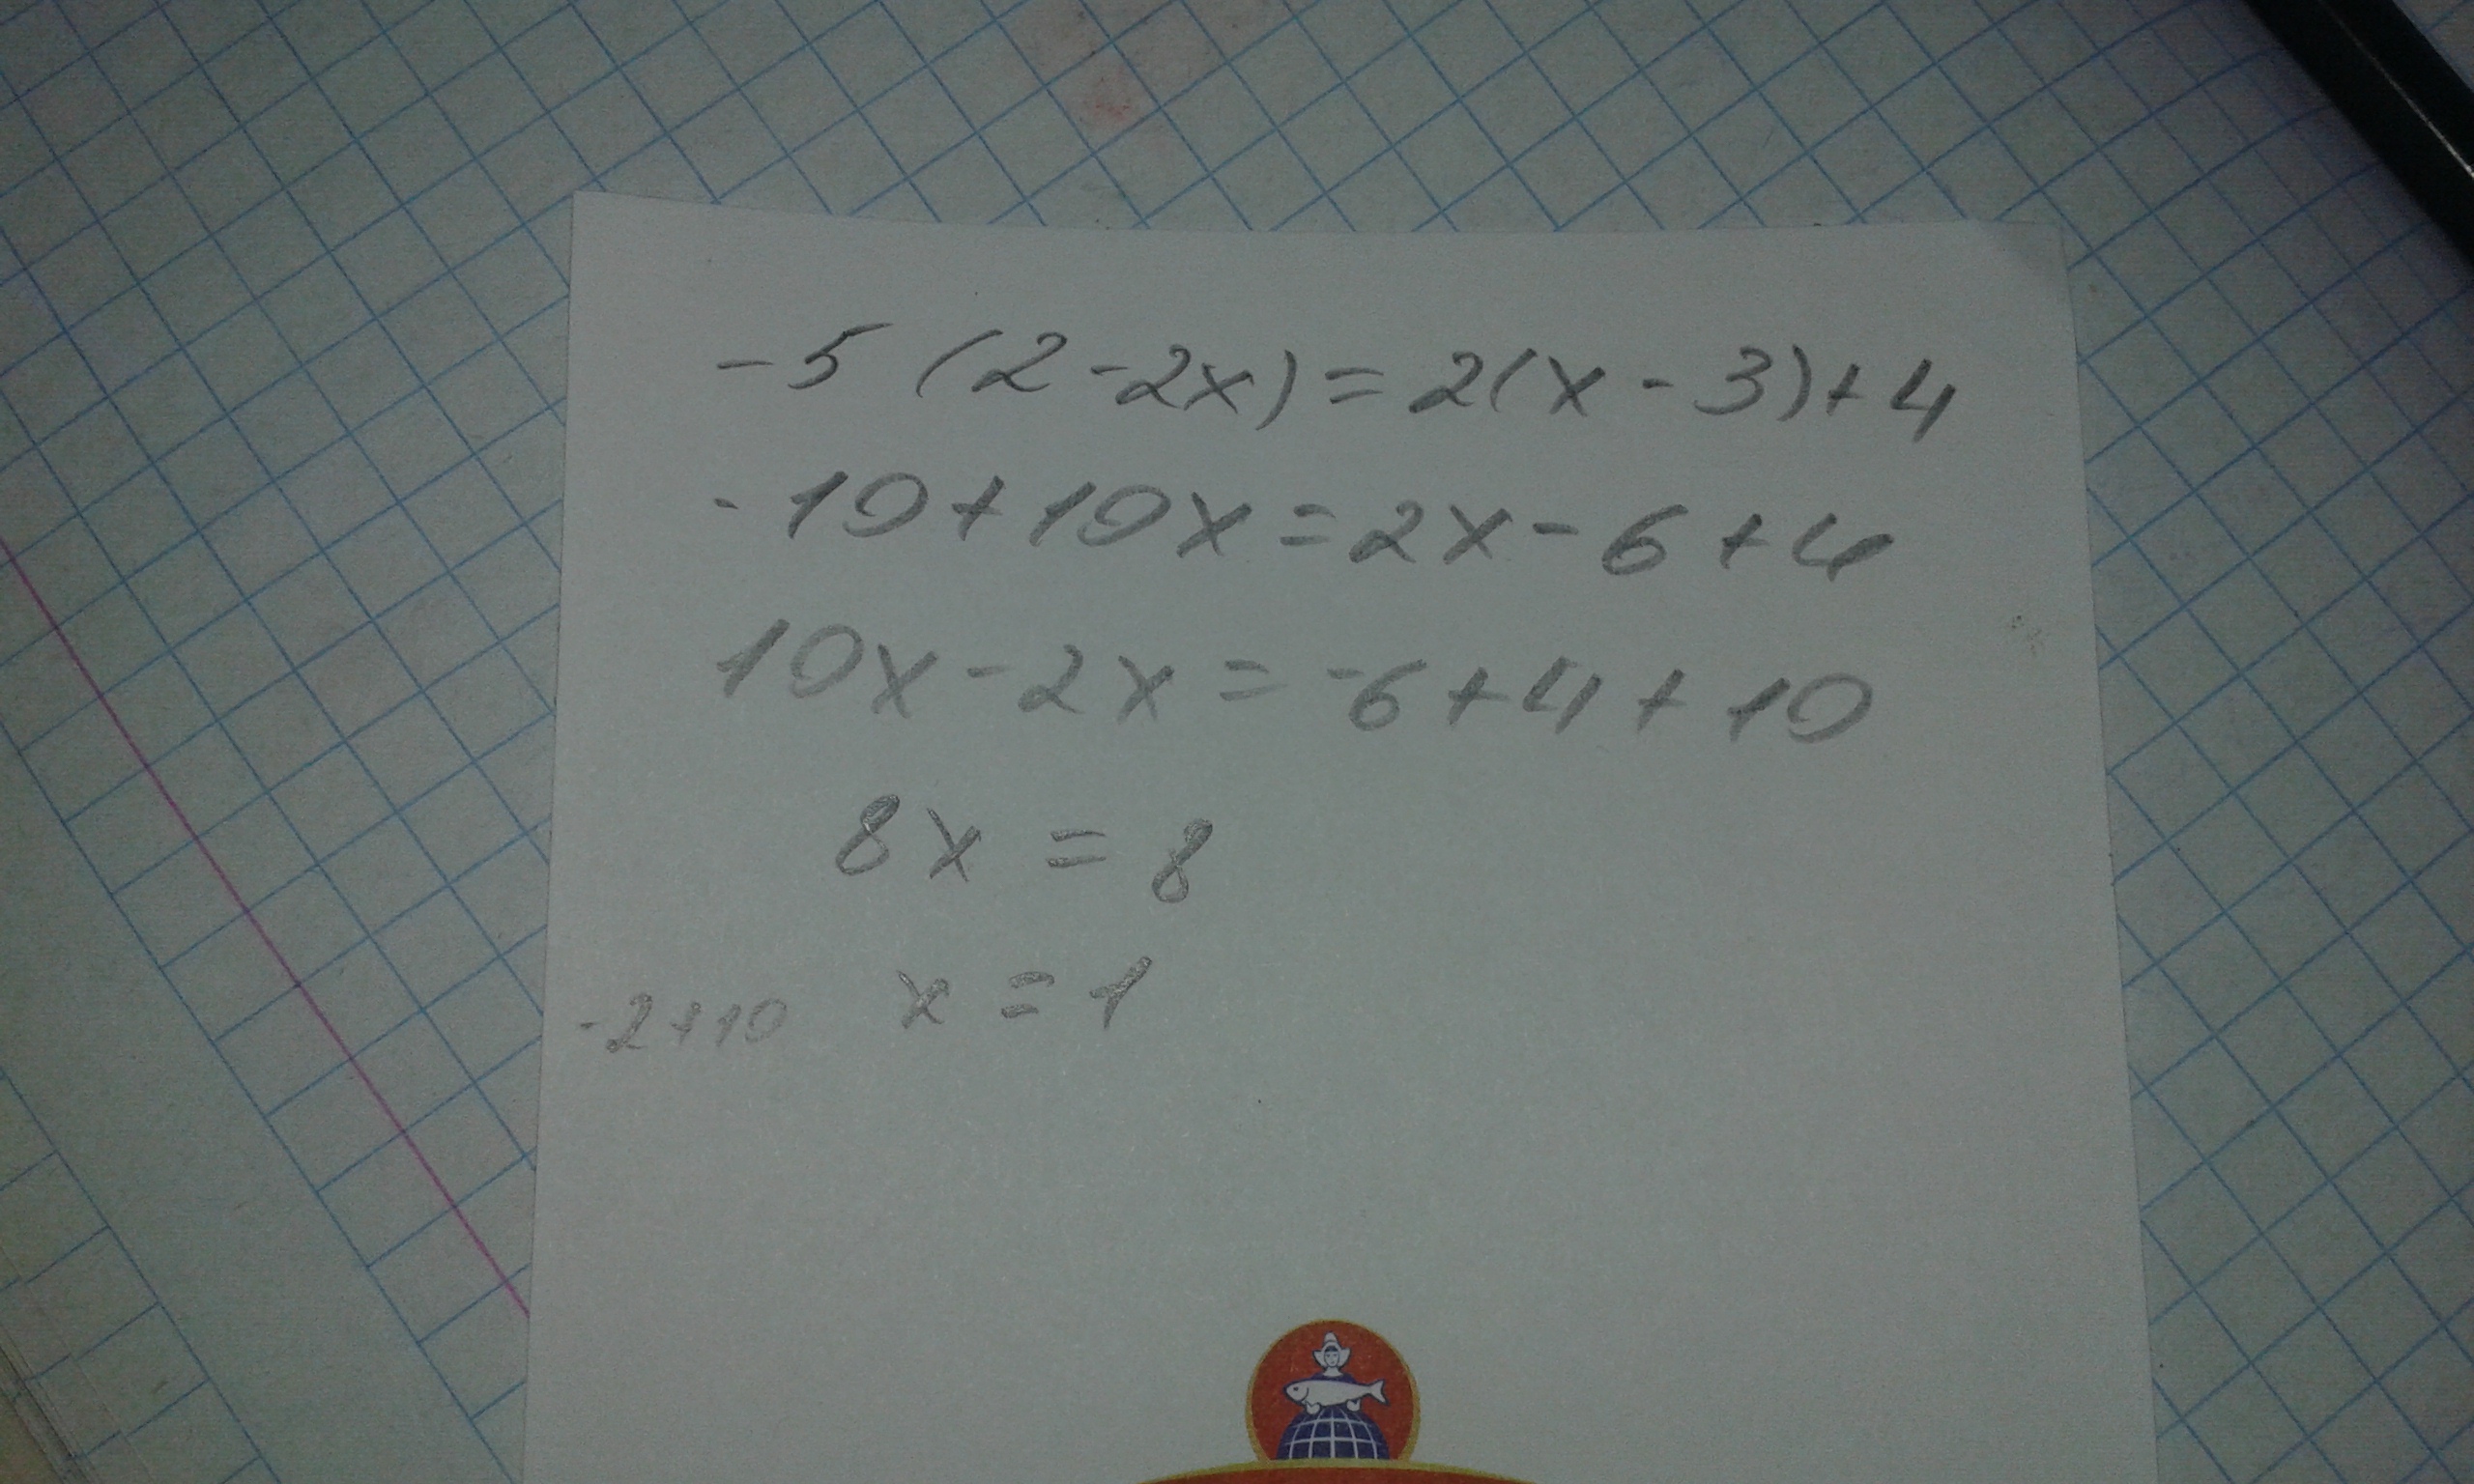 -5 (2-2x)=2(x-3)+4
-10+10x=2x-6+4
10x-2x=-6+4+10
8x=8
x=1
-2+10